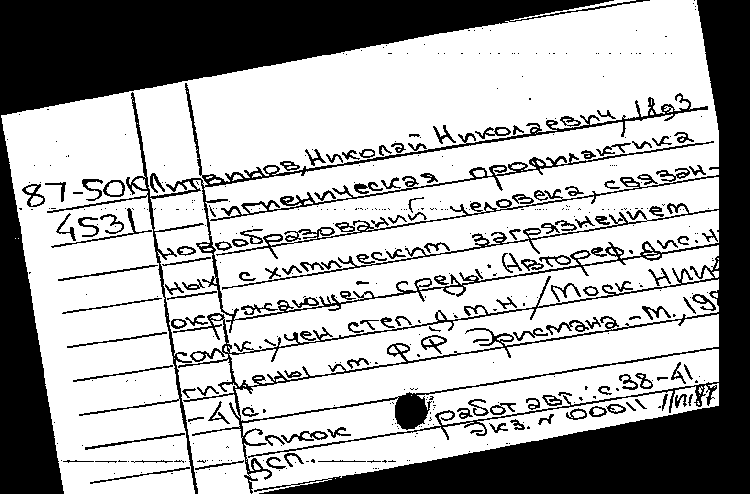 87-50К Литвинов, Николай Николаевич, 1893
4531 Гигиеническая профилактика
новообразований человека, связан-
ных с химическим загрязнением
окружающей среды: Автореф. дис. н
соиск. учен. степ. д.м.н. / Моск. НИИ
гигиены им. Ф.Ф. Эрисмана. - М., 198
-41с.
Список работ авт.: с. 38-41.
ДСП. Экз. N 00011